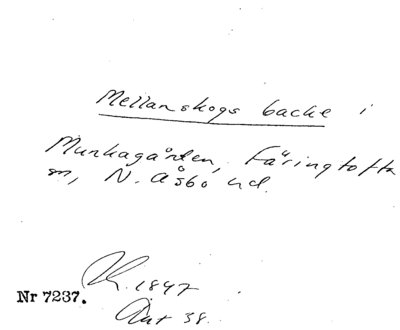 Mellanskogs backe i
Munkagården, Färingtofta
sn, N. Åsbo hd.
K. 1847
Ant 38.
Nr 7237.